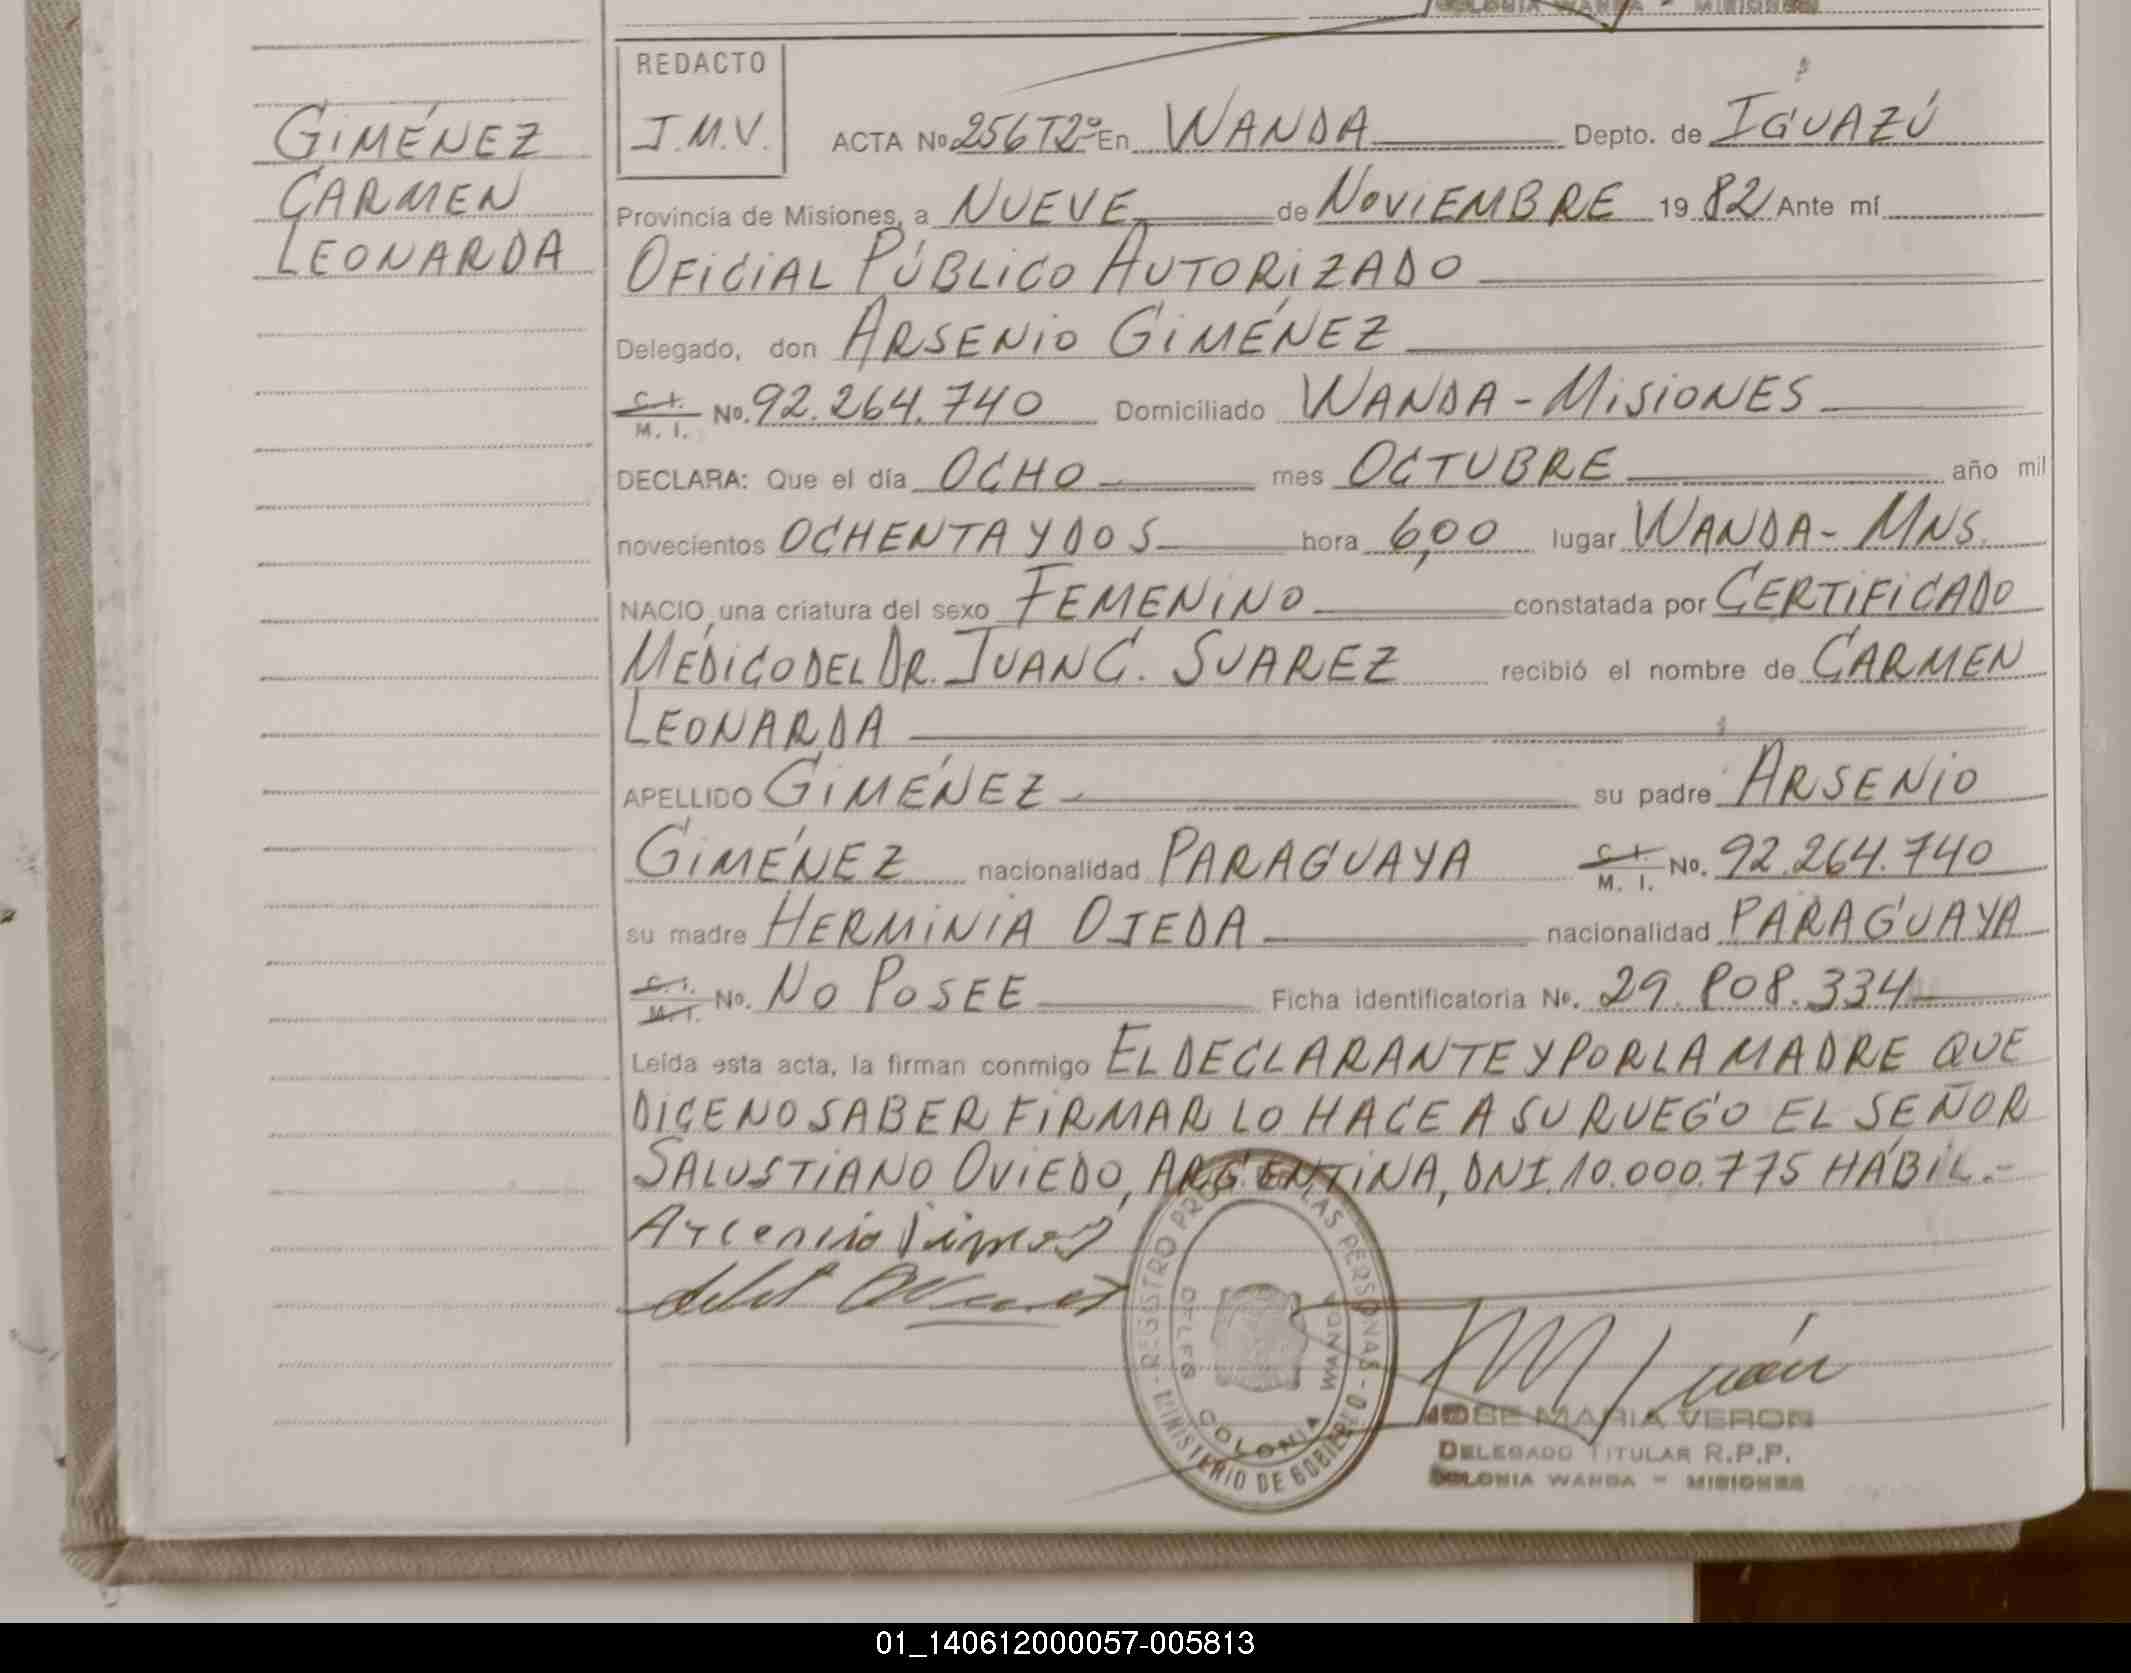 COLONIA WANDA - MISIONES
GIMÉNEZ
CARMEN
LEONARDA
REDACTO
J.M.V.
ACTA No 256 T2º En WANDA Depto. de IGUAZÚ
Provincia de Misiones, a NUEVE de NOVIEMBRE 1982 Ante mí
OFICIAL PÚBLICO AUTORIZADO
Delegado, don ARSENIO GIMÉNEZ
C. I. M. I. No. 92.264.740 Domiciliado WANDA - MISIONES
DECLARA: Que el día OCHO mes OCTUBRE año mil
novecientos OCHENTA Y DOS hora 6,00 lugar WANDA - MNS.
NACIO, una criatura del sexo FEMENINO constatada por CERTIFICADO
MÉDICO DEL DR. JUAN C. SUAREZ recibió el nombre de CARMEN
LEONARDA
APELLIDO GIMÉNEZ su padre ARSENIO
GIMÉNEZ nacionalidad PARAGUAYA C. I. M. I. No. 92.264.740
su madre HERMINIA OJEDA nacionalidad PARAGUAYA
C. I. M. I. No. NO POSEE Ficha identificatoria No. 29.808.334
Leída esta acta, la firman conmigo EL DECLARANTE Y POR LA MADRE QUE
DICE NO SABER FIRMAR LO HACE A SU RUEGO EL SEÑOR
SALUSTIANO OVIEDO, ARGENTINA, DNI. 10.000.775 HÁBIL.-
REGISTRO PROV. LAS PERSONAS - MINISTERIO DE GOBIERNO
COLONIA WANDA
JOSE MARIA VERON
DELEGADO TITULAR R.P.P.
COLONIA WANDA - MISIONES
01_140612000057-005813